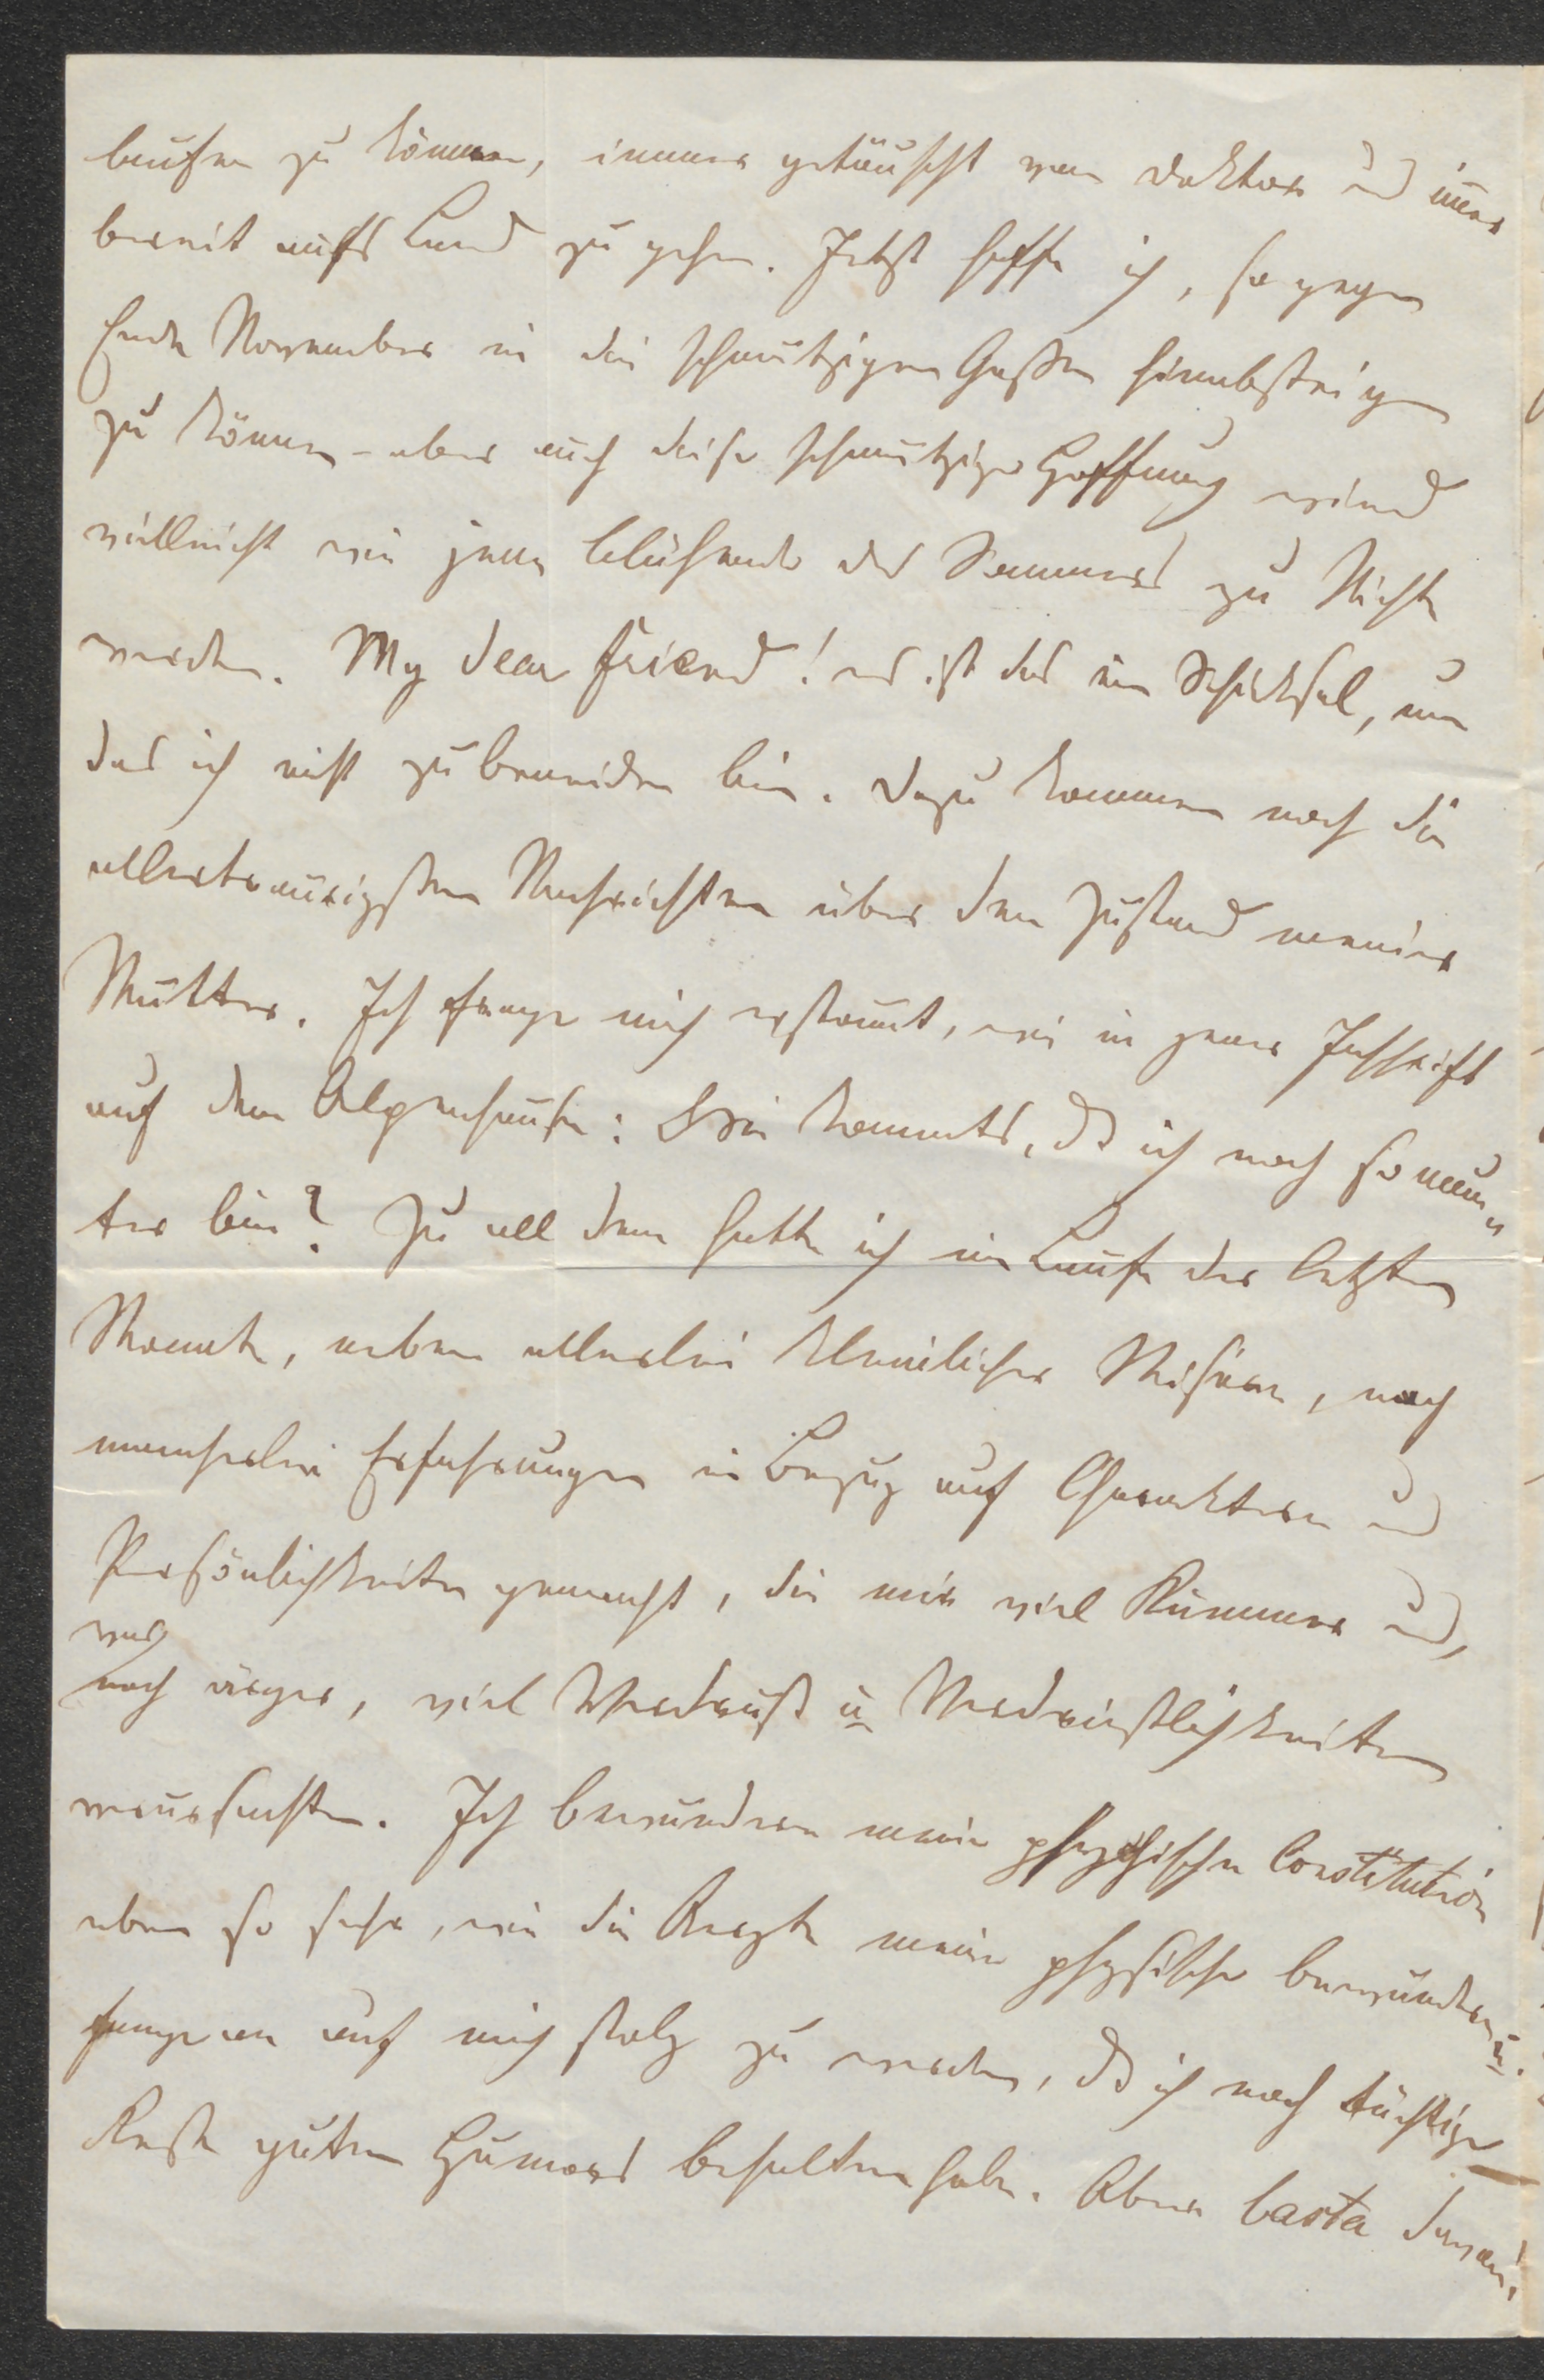 laufen zu können, immer getäuscht vom Doktor und im̄er
bereit aufs Land zu gehen. Jetzt hoffe ich, so gegen
Ende November in die schmutzigen Gassen hinabsteigen
zu können – aber auch diese schmutzige Hoffnung wird
vielleicht wie jene blühende des Sommers zu Nichte
werden. My dear friend! es ist das ein Schicksal, um
das ich nicht zu beneiden bin. Dazu kommen noch die
allertraurigsten Nachrichten über den Zustand meiner
Mutter. Ich frage mich erstaunt, wie in jener Inschrift
auf dem Alpenhause: Wie kommts, dß ich noch so mun-
ter bin? Zu all dem hatte ich im Laufe der letzten
Monate, neben allerlei kleinlicher Misère, noch
mancherlei Erfahrungen in Bezug auf Charaktere und
Persönlichkeiten gemacht, die mir viel Kummer und,
was
noch ärger, viel Verdruß u Verdrießlichkeiten
verursachten. Ich bewundere meine psychische Constitution
eben so sehr, wie die Aerzte meine physische bewundern u.
fange an auf mich stolz zu werden, dß ich noch tüchtige
Reste guten Humors behalten habe. Aber basta davon!